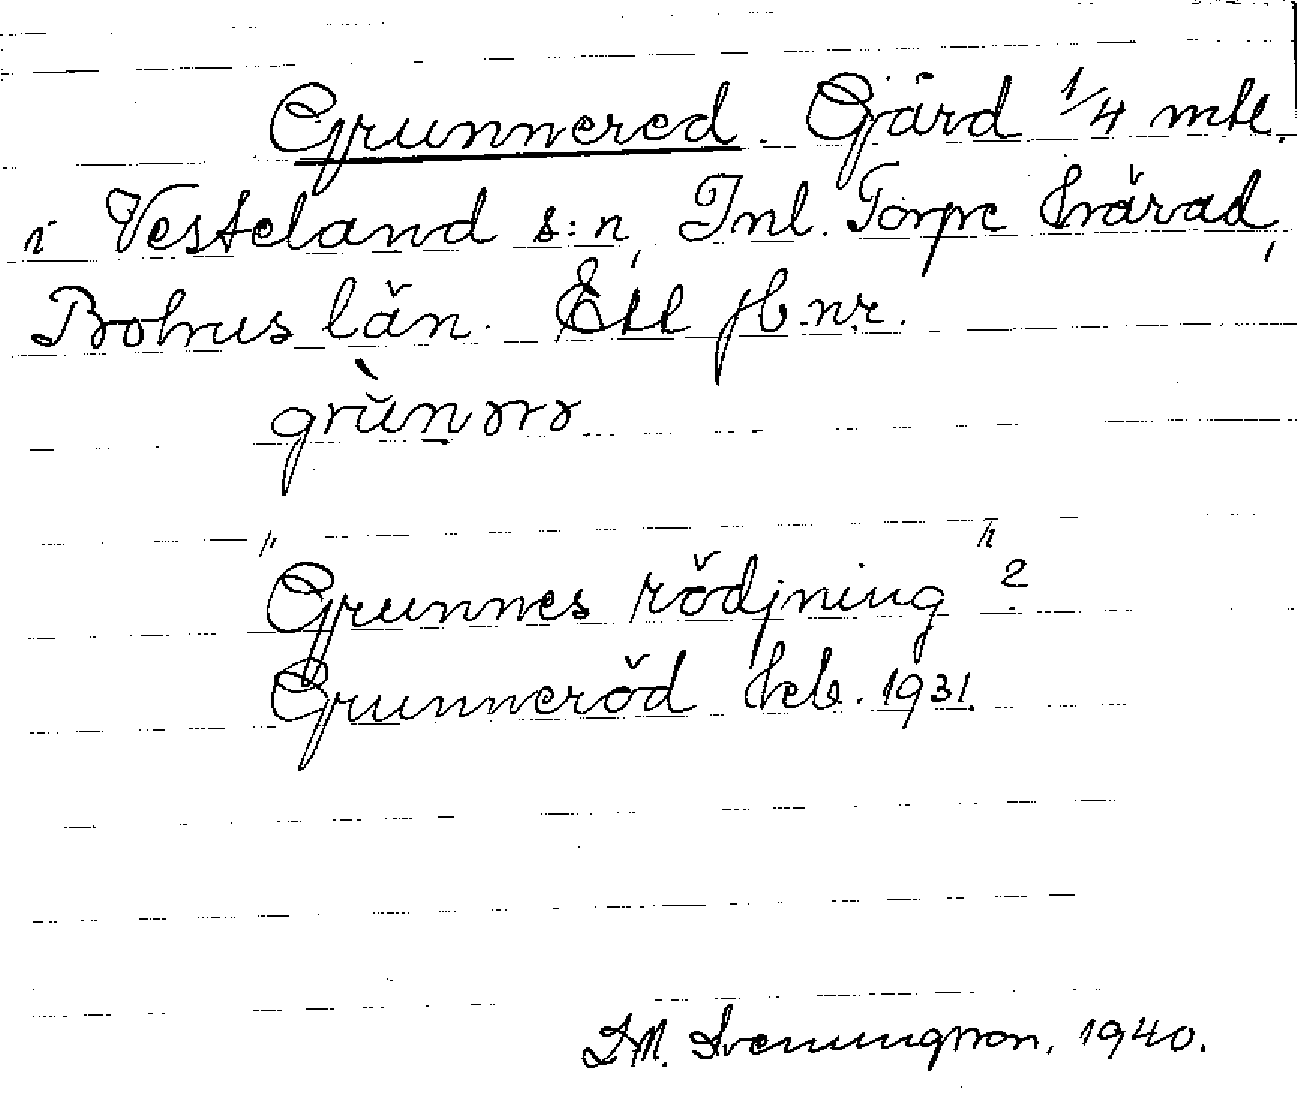 Grunnered. Gård 1/4 mtl.
i Vesteland s:n, Inl. Torpe härad,
Bohus län. Ett jb.nr.
"Grunnes rödjning"?
Grunneröd heb. 1931.
Sveningsson, 1940.